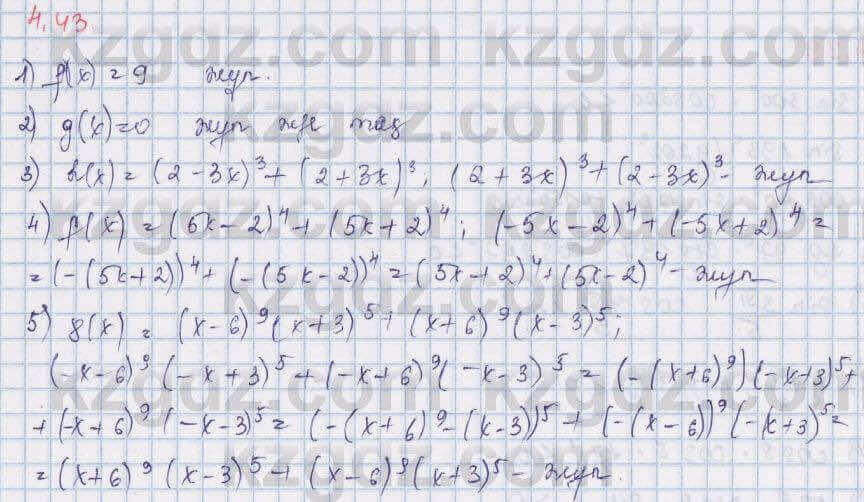 4.43
1) f(x) = 9 жұп.
2) g(x)=0 жұп және тақ
3) h(x) = (2-3x)³+(2+3x)³; (2+3x)³+(2-3x)³- жұп
4) f(x) = (5x-2)⁴+(5x+2)⁴; (-5x-2)⁴+(-5x+2)⁴=
=(-(5x+2))⁴+(-(5x-2))⁴=(5x+2)⁴+(5x-2)⁴- жұп
5) g(x) = (x-6)⁹(x+3)⁵+(x+6)⁹(x-3)⁵;
(-x-6)⁹(-x+3)⁵+(-x+6)⁹(-x-3)⁵=(-(x+6)⁹)(-x+3)⁵+
+(-x+6)⁹(-x-3)⁵=(-(x+6)⁹-(x-3))⁵+(-(x-6))⁹(-(x+3)⁵=
=(x+6)⁹(x-3)⁵+(x-6)⁹(x+3)⁵- жұп.